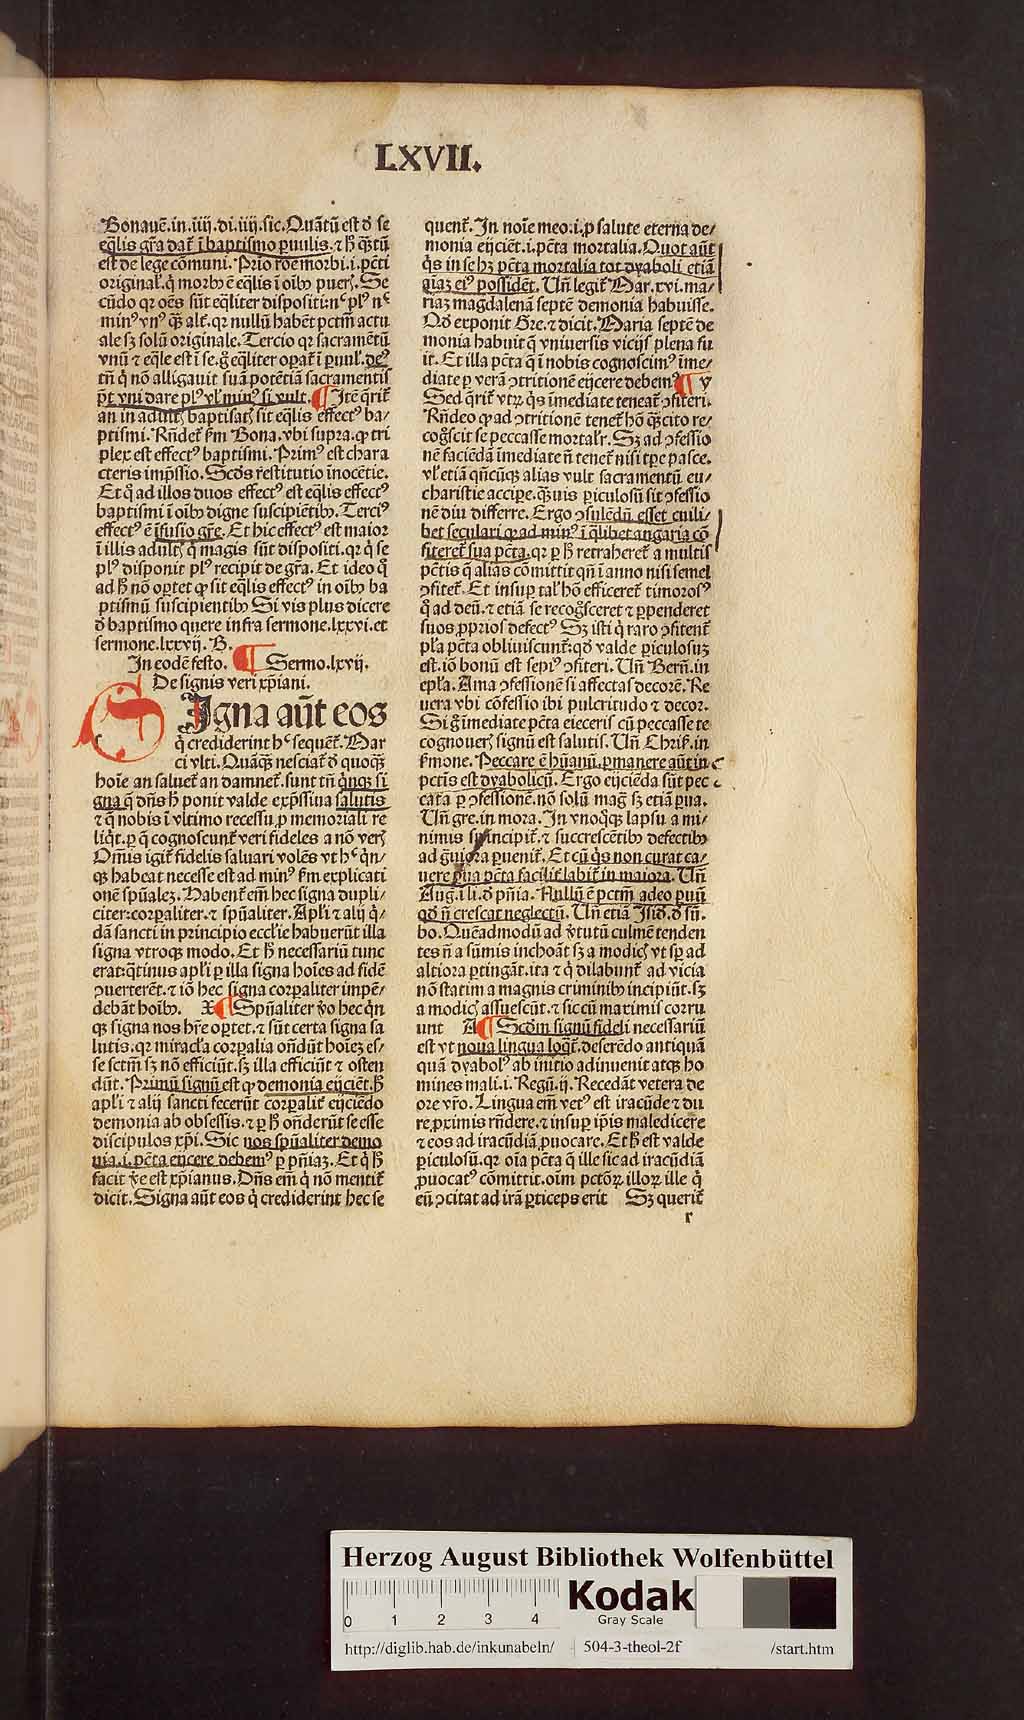 LXVII.
Bonauẽ.in.iiij.di.iiij.sic.Quãtũ est ð se
eq̃lis gr̃a dat̃ ĩ baptismo p̱uulis.⁊ h̃ q̃tũ
est de lege cõmuni. Prio rõe morbi.i.pc̃ti
original̃.q̃ morbꝰ ẽ eq̃lis ĩ oĩbꝰ puerꝭ. Se
cũdo qr oẽs sũt eq̃liter dispositi:nᶜ plꝰ nᶜ
minꝰ vnꝰ q̃ꝫ alt̃.qr nullũ habẽt pctm̃ actu
ale sꝫ solũ originale. Tercio qr sacramẽtũ
vnũ ⁊ eq̃le est ĩ se.g̃ eq̃liter oparᷓt ĩ p̱uul̃.deꝰ
tñ q̃ nõ alligauit suã potẽtiã sacramentis
p̃t vni dare plꝰ vl̃ minꝰ si vult. ¶ Itẽ q̃rit̃
an in adultꝭ baptisatꝭ sit eq̃lis effectꝰ ba/
ptismi. Rñdet̃ fm̃ Bona.vbi supra.ꝙ tri
plex est effectꝰ baptismi. Primꝰ est chara
cteris imp̃ssio. Scðs restitutio ĩnocẽtie.
Et q̃ ad illos duos effectꝰ est eq̃lis effectꝰ
baptismi ĩ oĩbꝰ digne suscipiẽtibꝰ. Terciꝰ
effectꝰ ẽ ĩfusio gr̃e. Et hic effectꝰ est maior
ĩ illis adultꝭ q̃ magis sũt dispositi.qr q̃ se
plꝰ disponit plꝰ recipit de gr̃a. Et ideo q̃
ad h̃ nõ oꝑtet ꝙ sit eq̃lis effectꝰ in oĩbꝰ ba
ptismũ suscipientibꝰ Si vis plus dicere
ð baptismo quere infra sermone.lxxvi.et
sermone.lxxvij. B.
In eodẽ festo. ¶ Sermo.lxvij.
De signis veri xp̃iani.
SIgna aũt eos
q̃ crediderint hᶜ sequẽt̃. Mar
ci vlti. Quãq̃ꝫ nesciat̃ ð quoq̃ꝫ
hoĩe an saluet̃ an damnet̃.sunt tñ q̃nqꝫ si
gna q̃ dñs h̃ ponit valde exp̃ssiua salutis
⁊ q̃ nobis ĩ vltimo recessu ꝓ memoriali re
liq̃t.ꝑ q̃ cognoscunt̃ veri fideles a nõ verꝭ
Om̃is igit̃ fidelis saluari volẽs vt hᶜ q̃n/
qꝫ habeat necesse est ad minꝰ fm̃ explicati
onẽ sp̃ualeꝫ. Habent̃ em̃ hec signa dupli/
citer:corꝑaliter.⁊ sp̃ualiter. Apl̃i ⁊ alij q̃/
dã sancti in principio eccl̃ie habuerũt illa
signa vtroqꝫ modo. Et h̃ necessariũ tunc
erat:q̃tinus apl̃i ꝑ illa signa hoĩes ad fidẽ
ꝯuerterẽt.⁊ iõ hec signa corꝑaliter impẽ/
debãt hoĩbꝰ. X ¶ Sp̃ualiter v̾o hec q̃n
qꝫ signa nos hr̃e oꝑtet.⁊ sũt certa signa sa
lutis.qr miracl̃a corꝑalia oñdũt hoĩeꝫ es/
se sctm̃ sꝫ nõ efficiũt.sꝫ illa efficiũt ⁊ osten
dũt. Primũ signũ est ꝙ demonia eijciẽt.h̃
apl̃i ⁊ alij sancti fecerũt corꝑalit̃ eijciẽdo
demonia ab obsessis.⁊ ꝑ h̃ oñderũt se esse
discipulos xp̃i. Sic nos sp̃ualiter demo
nia.i.pc̃ta eijcere debemꝰ ꝑ pñiaꝫ. Et q̃ h̃
facit v̾e est xp̃ianus. Dñs em̃ q̃ nõ mentit̃
dicit. Signa aũt eos q̃ crediderint hec se
quent̃. In noĩe meo.i.ꝓ salute eterna de/
monia eijciẽt.i.pc̃ta mortalia. Quot aũt
q̃s in se hꝫ pc̃ta mortalia tot dyaboli etiã
aĩaꝫ eiꝰ possidẽt. Uñ legit̃ Mar.xvi.ma/
riaꝫ magdalenã septẽ demonia habuisse.
Qð exponit Gre.⁊ dicit. Maria septẽ de
monia habuit q̃ vniuersis vicijs plena fu
it. Et illa pc̃ta q̃ ĩ nobis cognoscimꝰ ĩme/
diate ꝑ verã ꝯtritionẽ eijcere debemꝰ ¶ y
Sed q̃rit̃ vtꝝ q̃s ĩmediate teneat̃ ꝯfiteri.
Rñdeo ꝙ ad ꝯtritionẽ tenet̃ hõ q̃ꝫcito re/
cog̃scit se peccasse mortal̃r. Sꝫ ad ꝯfessio
nẽ faciẽdã ĩmediate ñ tenet̃ nisi tꝑe pasce.
vl̃ etiã qñcũqꝫ alias vult sacramentũ eu/
charistie accipe.q̃uis ꝑiculosũ sit ꝯfessio
nẽ diu differre. Ergo ꝯsulẽdũ esset cuili/
bet seculari ꝙ ad minꝰ ĩ q̃libet angaria cõ
fiteret̃ sua pc̃ta.qr ꝑ h̃ retraheret̃ a multis
pc̃tis q̃ alias cõmittit qñ ĩ anno nisi semel
ꝯfitet̃. Et insuꝑ tal̃ hõ efficeret̃ timorosꝰ
q̃ ad deũ.⁊ etiã se recog̃sceret ⁊ ꝑpenderet
suos ꝓprios defectꝰ Sꝫ isti q̃ raro ꝯfitent̃
pl̃a pc̃ta obliuiscunt̃:qð valde ꝑiculosuꝫ
est.iõ bonũ est sepiꝰ ꝯfiteri. Uñ Berñ.in
epl̃a. Ama ꝯfessionẽ si affectas decorẽ. Re
uera vbi cõfessio ibi pulcritudo ⁊ decor.
Si g̃ ĩmediate pc̃ta eieceris cũ peccasse te
cognouerꝭ signũ est salutis. Uñ Chriſ.in
ẜmone. Peccare ẽ hũanũ.ꝑmanere aũt in
pctis est dyabolicũ. Ergo eijciẽda sũt pec
cata ꝑ ꝯfessionẽ.nõ solũ mag̃ sꝫ etiã ꝑua.
Uñ gre.in mora. In vnoq̃qꝫ lapsu a mi/
nimus principit̃.⁊ succrescẽtibꝰ defectibꝰ
ad g̃uiora ꝑuenit̃. Et cũ q̃s non curat ca/
uere ꝑua pc̃ta facilit̃ labit̃ in maiora. Uñ
Aug.i li.ð pñia. Nullũ ẽ pctm̃ adeo ꝑuũ
qð ñ crescat neglectũ. Uñ etiã Isið.ð sũ.
bo. Quẽadmodũ ad v̾tutũ culmẽ tenden
tes ñ a sũmis inchoãt sꝫ a modicꝭ vt sꝑ ad
altiora ꝑtingãt.ita ⁊ q̃ dilabunt̃ ad vicia
nõ statim a magnis criminibꝰ incipiũt.sꝫ
a modicꝭ assuescũt.⁊ sic cũ maximis corru
unt A ¶ Scðm signũ fideli necessariũ
est vt noua lingua loqt̃.deserẽdo antiquã
quã dyabolꝰ ab initio adinuenit atqꝫ ho
mines mali.i. Regũ.ij. Recedãt vetera de
ore vr̃o. Lingua em̃ vetꝰ est iracũde ⁊ du
re ꝓximis rñdere.⁊ insuꝑ ip̃is maledicere
⁊ eos ad iracũdiã ꝓuocare. Et h̃ est valde
ꝑiculosũ.qr oĩa pc̃ta q̃ ille sic ad iracũdiã
ꝓuocatꝰ cõmittit.oĩm pctõꝝ illoꝝ ille q̃
eũ ꝯcitat ad irã ꝑticeps erit Sꝫ querit̃
r
Herzog August Bibliothek Wolfenbüttel
0 1 2 3 4
Kodak
Gray Scale
http://diglib.hab.de/inkunabeln/ 504-3-theol-2f /start.htm